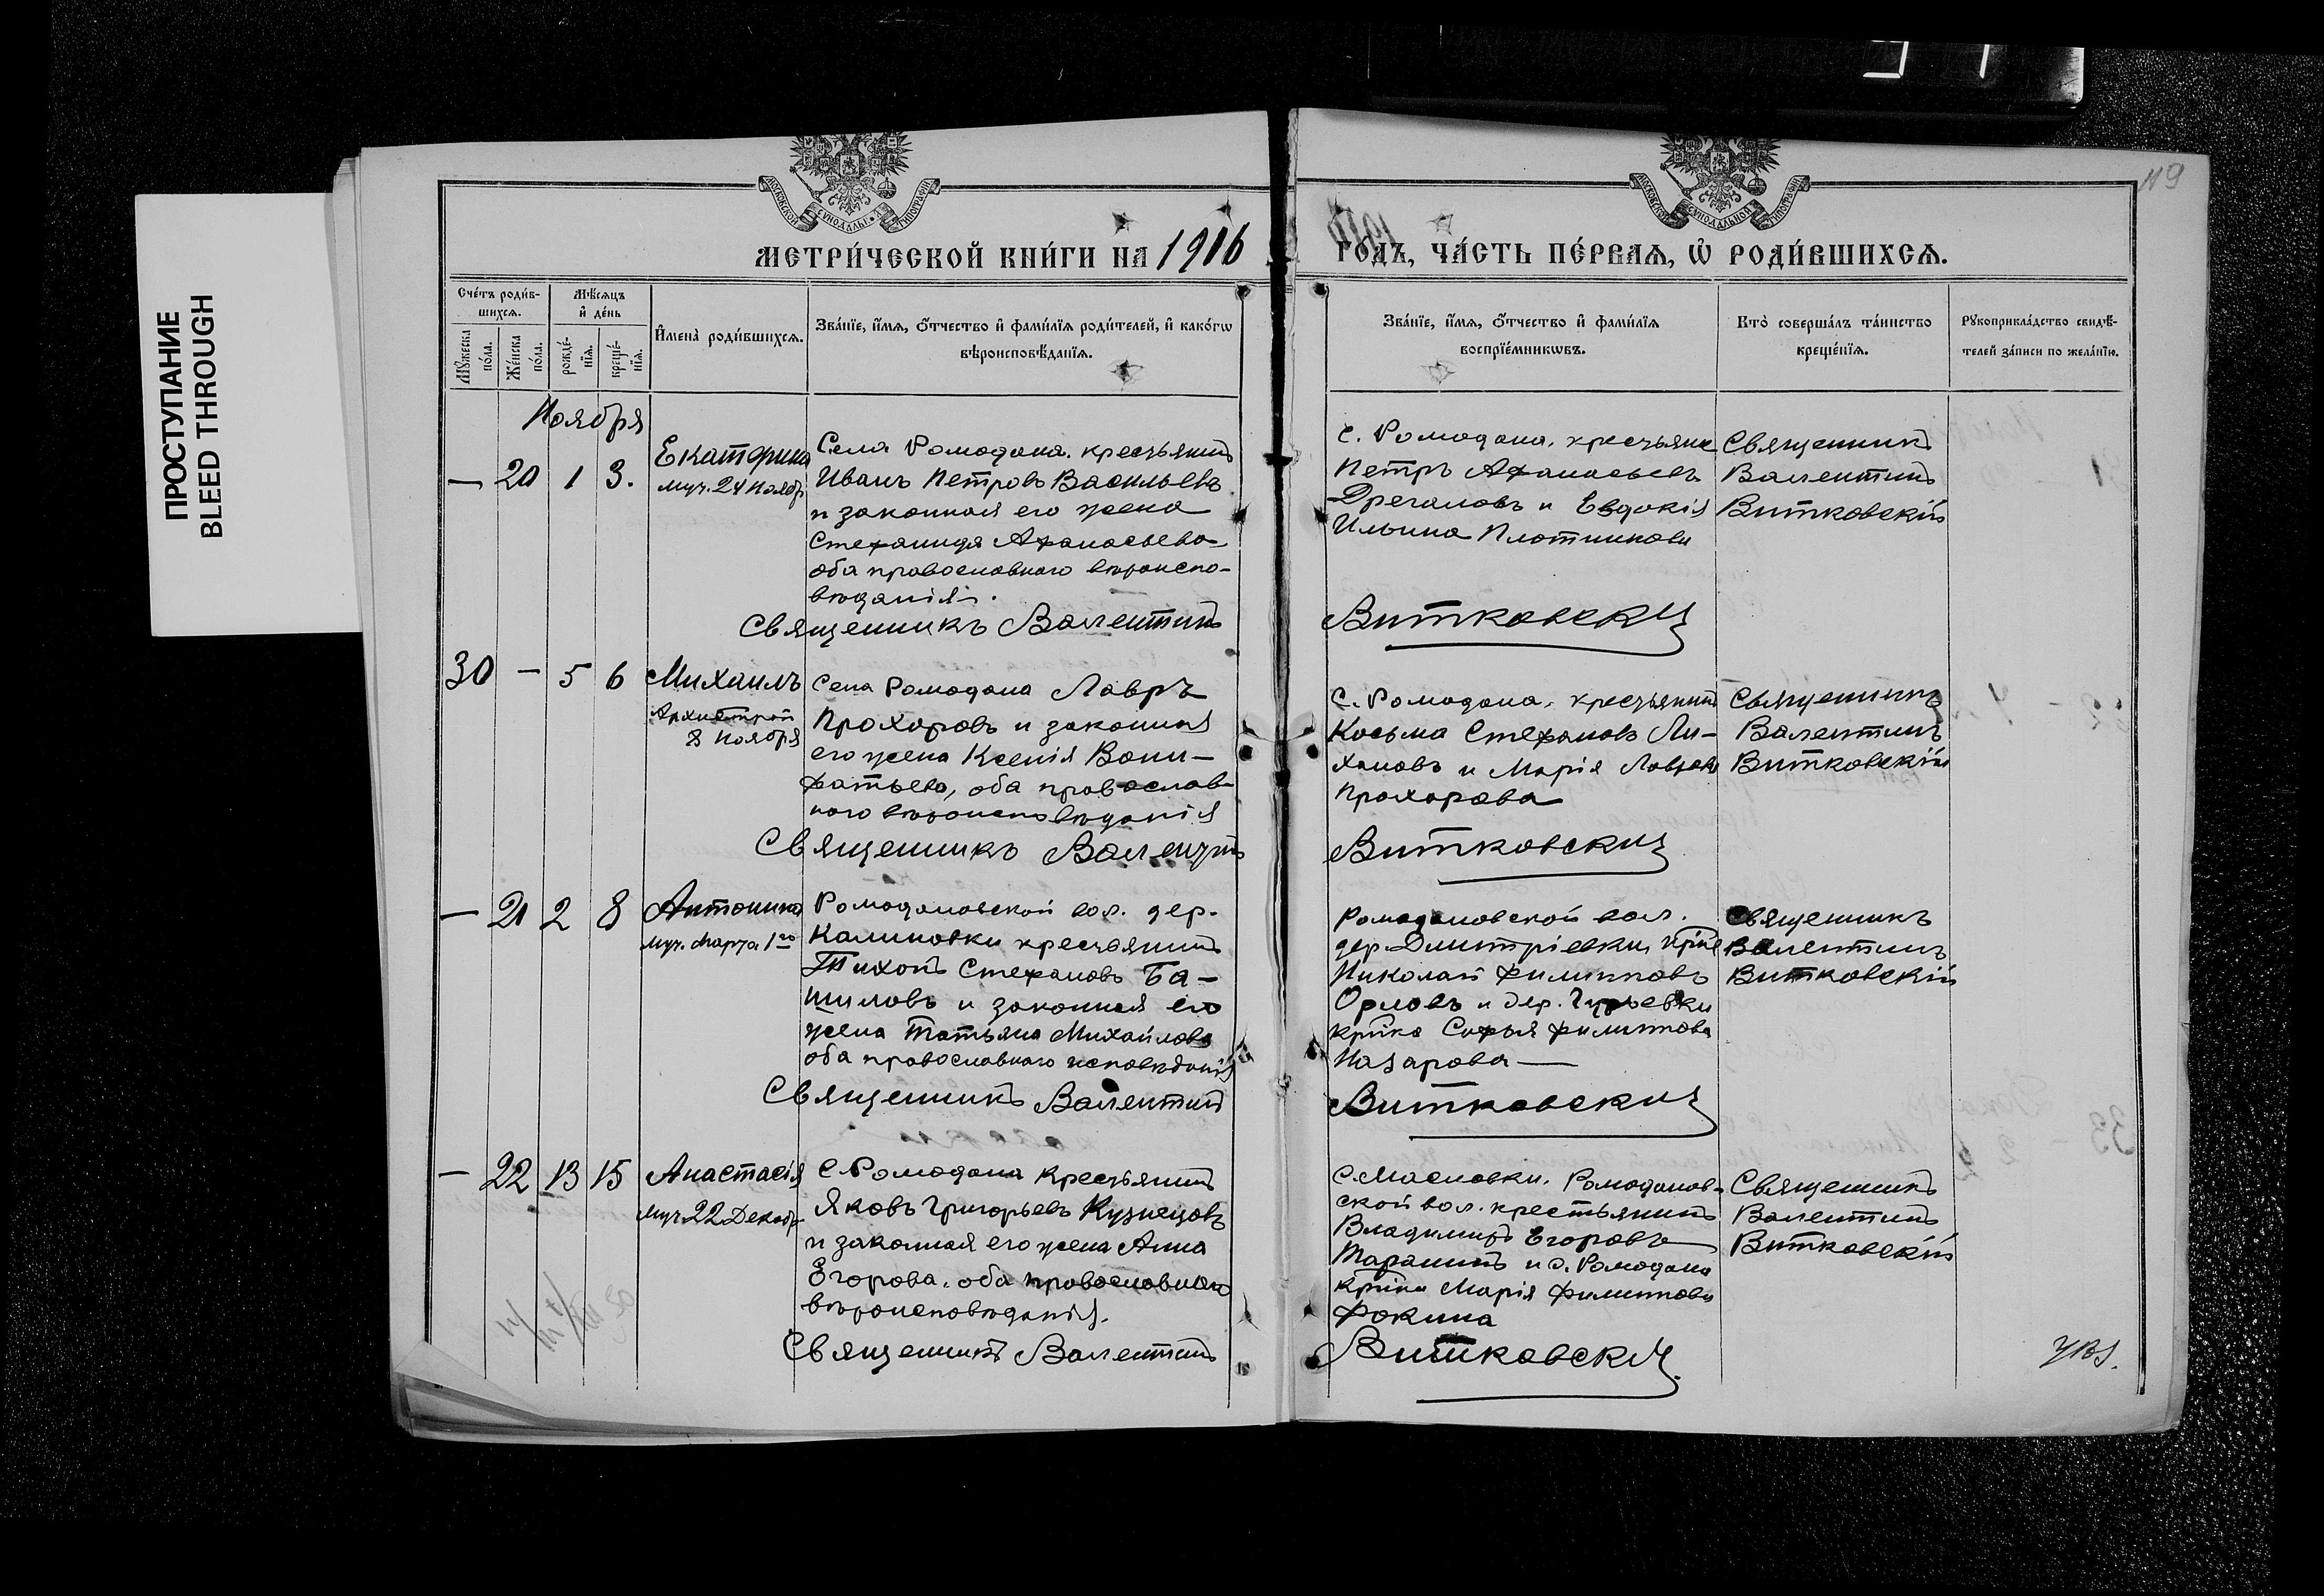 ПРОСТУПАНИЕ
BLEED THROUGH
119
МОСКОВСКОЙ СѴНОДАЛЬНОЙ ТИПОГРАФІИ
МЕТРИ́ЧЕСКОЙ КНИ́ГИ НА 1916
ГО́ДЪ, ЧА́СТЬ ПЕ́РВАѦ, Ѡ҆ РОДИ́ВШИХСѦ.
Сче́тъ роди́в-
шихсѧ.
Мꙋ́жеска
по́ла.
Же́нска
по́ла.
Мѣ́сѧцъ
и҆ де́нь
рожде́-
нїѧ.
креще́-
нїѧ.
И҆мена̀ роди́вшихсѧ.
Зва́нїе, и҆́мѧ, ѻ҆́тчество и҆ фами́лїѧ роди́телей, и҆ како́гѡ
вѣроисповѣ́данїѧ.
Зва́нїе, и҆́мѧ, ѻ҆́тчество и҆ фами́лїѧ
воспрїе́мникѡвъ.
Кто̀ соверша́лъ та́инство
креще́нїѧ.
Рꙋкоприкла́дство свидѣ́-
телей за́писи по жела́нїю.
Ноября
— 20 1 3.
Екатерина
муч. 24 Ноябр
Села Ромодана. крестьянинъ
Иванъ Петровъ Васильевъ
и законная его жена
Стефанида Афанасьева
оба православнаго вѣроиспо-
вѣданія.
с. Ромодана. крестьяне
Петръ Афанасьевъ
Дрегаловъ и Евдокія
Ильина Плотникова
Священникъ
Валентинъ
Витковскій
Священникъ Валентинъ
Витковскій
30 — 5 6
Михаилъ
8 Ноября
Села Ромодана Лавръ
Прохоровъ и законная
его жена Ксенія Вони-
фатьева, оба православ-
наго вѣроисповѣданія
С. Ромодана. крестьянинъ
Косьма Стефановъ Ли-
хановъ и Марія Лаврова
Прохорова
Священникъ
Валентинъ
Витковскій
Священникъ Валентинъ
Витковскій
— 21 2 8
Антонина
муч. Марта 1го
Ромодановской вол. дер.
Калиновки крестьянинъ
Тихонъ Стефановъ Ба-
шиловъ и законная его
жена Татьяна Михайлова
оба православнаго исповѣданія
Ромодановской вол.
дер. Димитріевки
Николай Филипповъ
Орловъ и дер. Гурьевки
кр̃нка Софья Филиппова
Назарова —
Священникъ
Валентинъ
Витковскій
Священникъ Валентинъ
Витковскій
— 22 13 15
Анастасія
муч 22 Декабр
С. Ромодана Крестьянинъ
Яковъ Григорьевъ Кузнецовъ
и законная его жена Анна
Егорова. оба православнаго
вѣроисповѣданія.
с. Масловки. Ромоданов-
ской вол. крестьянинъ
Владимиръ Егоровъ
Таранинъ и с. Ромодана
Марія Филиппова
Фокина
Священникъ
Валентинъ
Витковскій
Священникъ Валентинъ
Витковскій